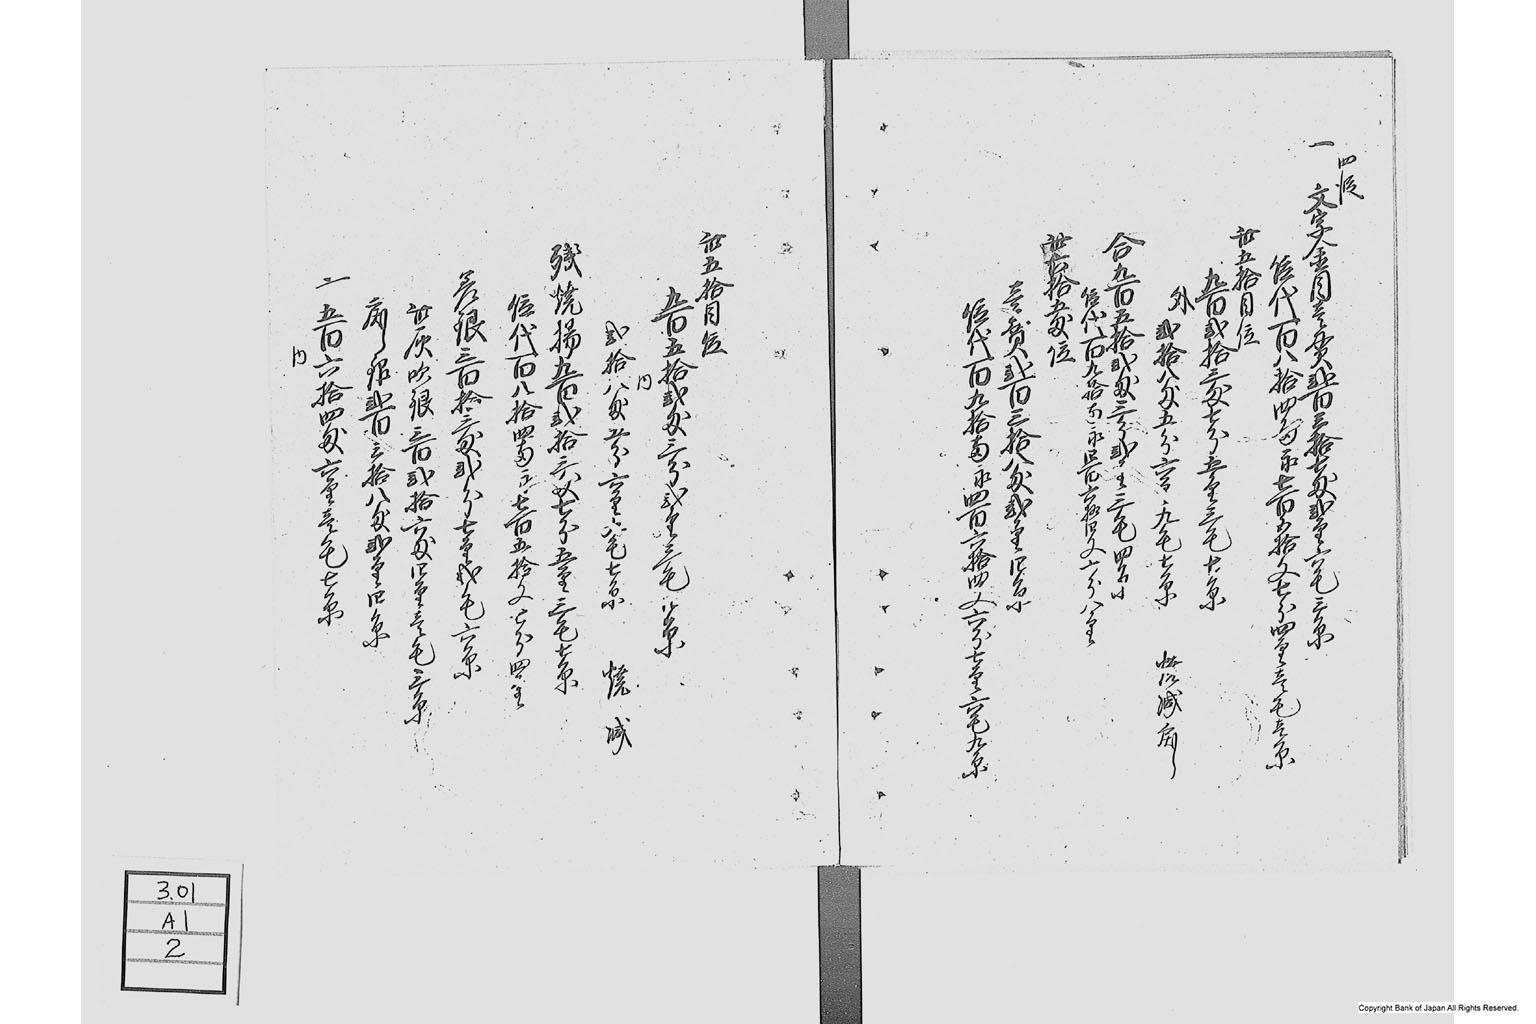 四段
一 文字金目壱貫弐百三拾七匁弐厘六毛三糸
位代百八拾四両永七百五拾文七分四厘壱毛壱糸
此五拾目位
九百弐拾三匁七分五厘三毛七糸
外 弐拾八匁五分六厘九毛七糸 減
合九百五拾弐匁三分弐厘三毛四糸
位代百九拾両永
此 位
壱貫弐百三拾八匁弐厘四糸
位代百九拾両永四百六拾四文六分七厘六毛九糸
此五拾目位
九百五拾弐匁三分弐厘三毛四糸
内
弐拾八匁五分六厘六毛七糸 焼減
残焼揚九百弐拾三匁七分五厘三毛七糸
位代百八拾四両永七百五拾文七分四厘
差銀三百拾三匁弐分七厘弐毛六糸
此灰吹銀三百弐拾六匁四厘壱毛三糸
銀弐百三拾八匁弐厘四糸
一 五百六拾四匁六厘壱毛七糸
内
3.01
A1
2
Copyright Bank of Japan All Rights Reserved.